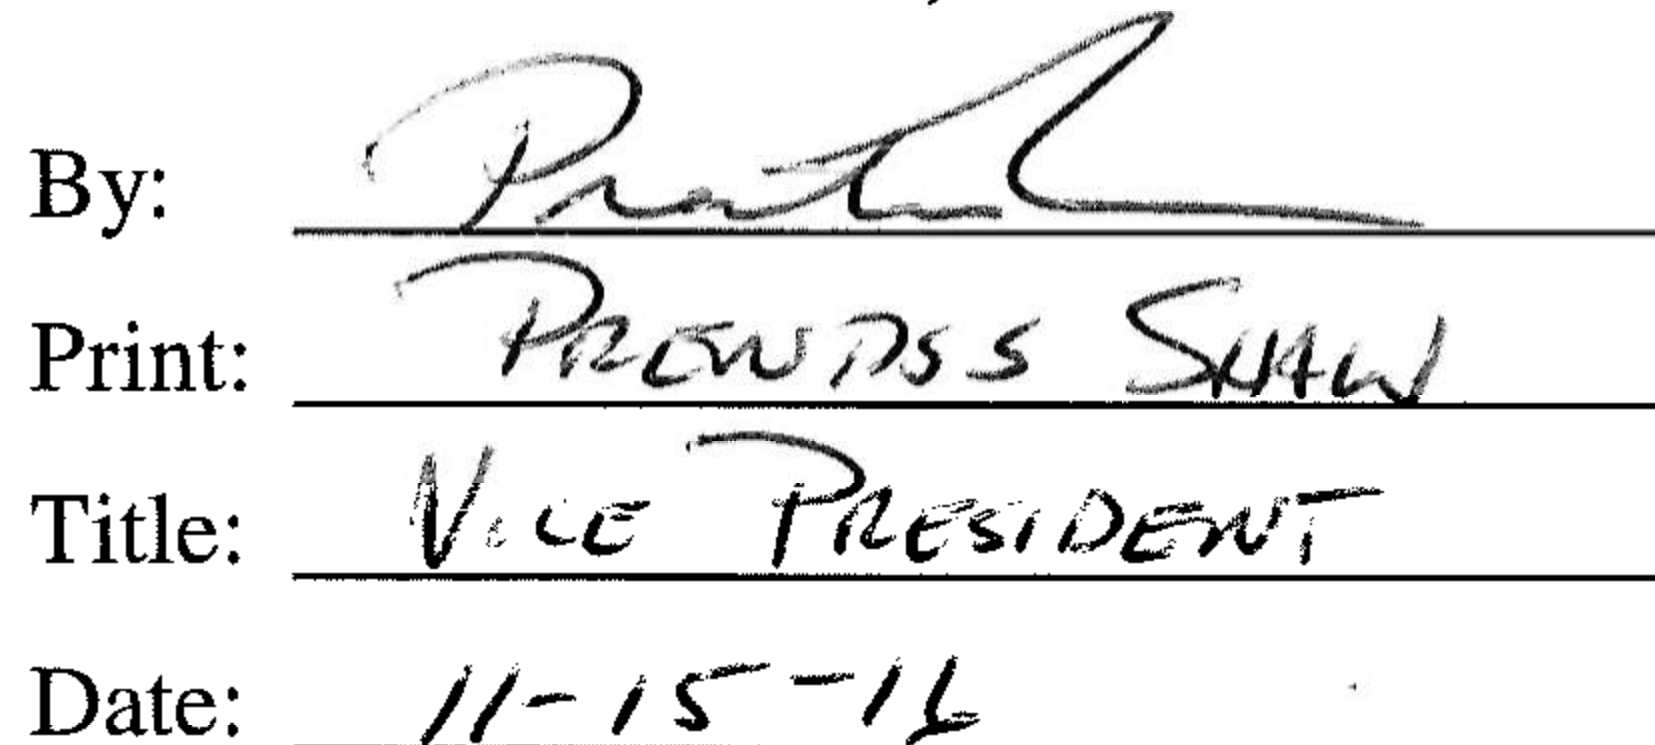 By:
Print: PRENTISS SHAW
Title: VICE PRESIDENT
Date: 11-15-16